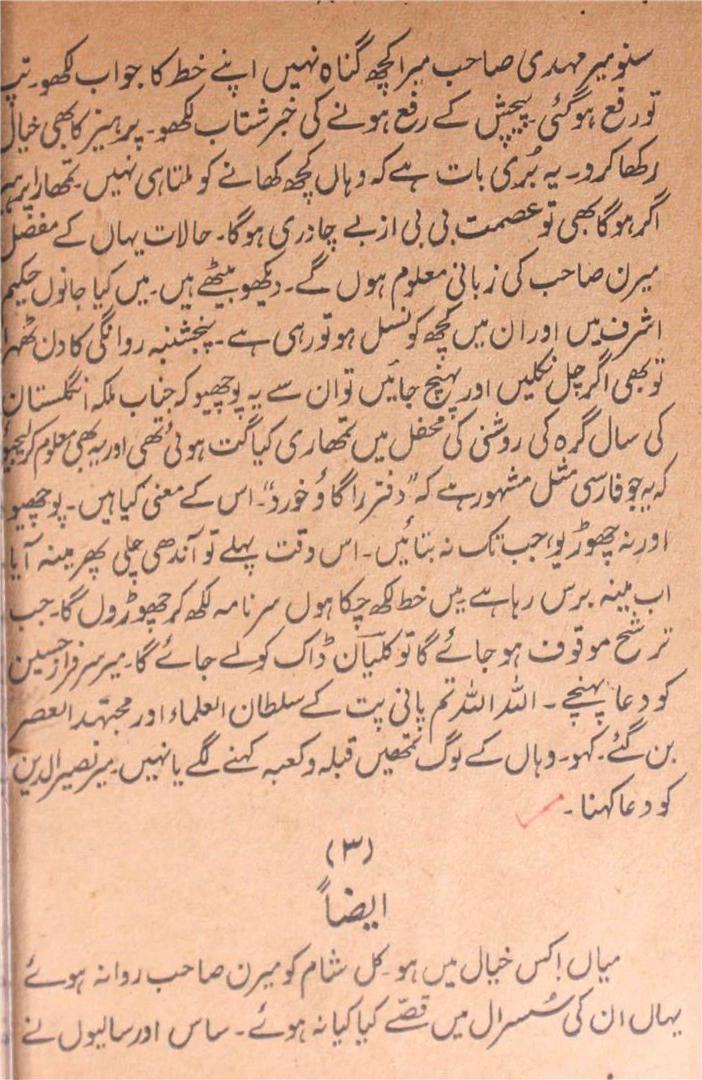 سنو میر مہدی صاحب میرا کچھ گناہ نہیں اپنے خط کا جواب لکھو۔ تپ
تو رفع ہوگئی پیچش کے رفع ہونے کی خبر شتاب لکھو۔ پرہیز کا بھی خیال
رکھا کرو۔ یہ بُری بات ہے کہ وہاں کچھ کھانے کو ملتا ہی نہیں تمھارا پرہیز
اگر ہوگا بھی تو عصمت بی بی از بے چادری ہوگا۔ حالات یہاں کے مفصل
میرن صاحب کی زبانی معلوم ہوں گے۔ دیکھو بیٹھے ہیں۔ میں کیا جانوں حکیم
اشرف میں اور ان میں کچھ کونسل ہو تو رہی ہے۔ پنجشنبہ روانگی کا دن ٹھہرا
تو بھی اگر چل نکلیں اور پہنچ جائیں تو ان سے یہ پوچھیو کہ جناب ملکہ انگلستان
کی سال گرہ کی روشنی کی محفل میں تمھاری کیا گت ہوئی تھی اور یہ بھی معلوم کر لیجیو
کہ یہ جو فارسی مثل مشہور ہے کہ "دفتر را گاؤ خورد"۔ اس کے معنی کیا ہیں۔ پوچھیو
اور نہ چھوڑیو، جب تک نہ بتائیں۔ اس وقت پہلے تو آندھی چلی پھر مینہ آیا
اب مینہ برس رہا ہے میں خط لکھ چکا ہوں سرنامہ لکھ کر چھوڑوں گا۔ جب
ترشح موقوف ہو جائے گا تو کلیان ڈاک کو لے جائے گا۔ میر سرفراز حسین
کو دعا پہنچے۔ اللہ اللہ تم پانی پت کے سلطان العلماء اور مجتہد العصر
بن گئے۔ کہو۔ وہاں کے لوگ تمھیں قبلہ و کعبہ کہنے لگے یا نہیں۔ میر نصیر الدین
کو دعا کہنا۔
(۳)
ایضاً
میاں! کس خیال میں ہو۔ کل شام کو میرن صاحب روانہ ہوئے
یہاں ان کی سُسرال میں قصّے کیا کیا نہ ہوئے۔ ساس اور سالیوں نے